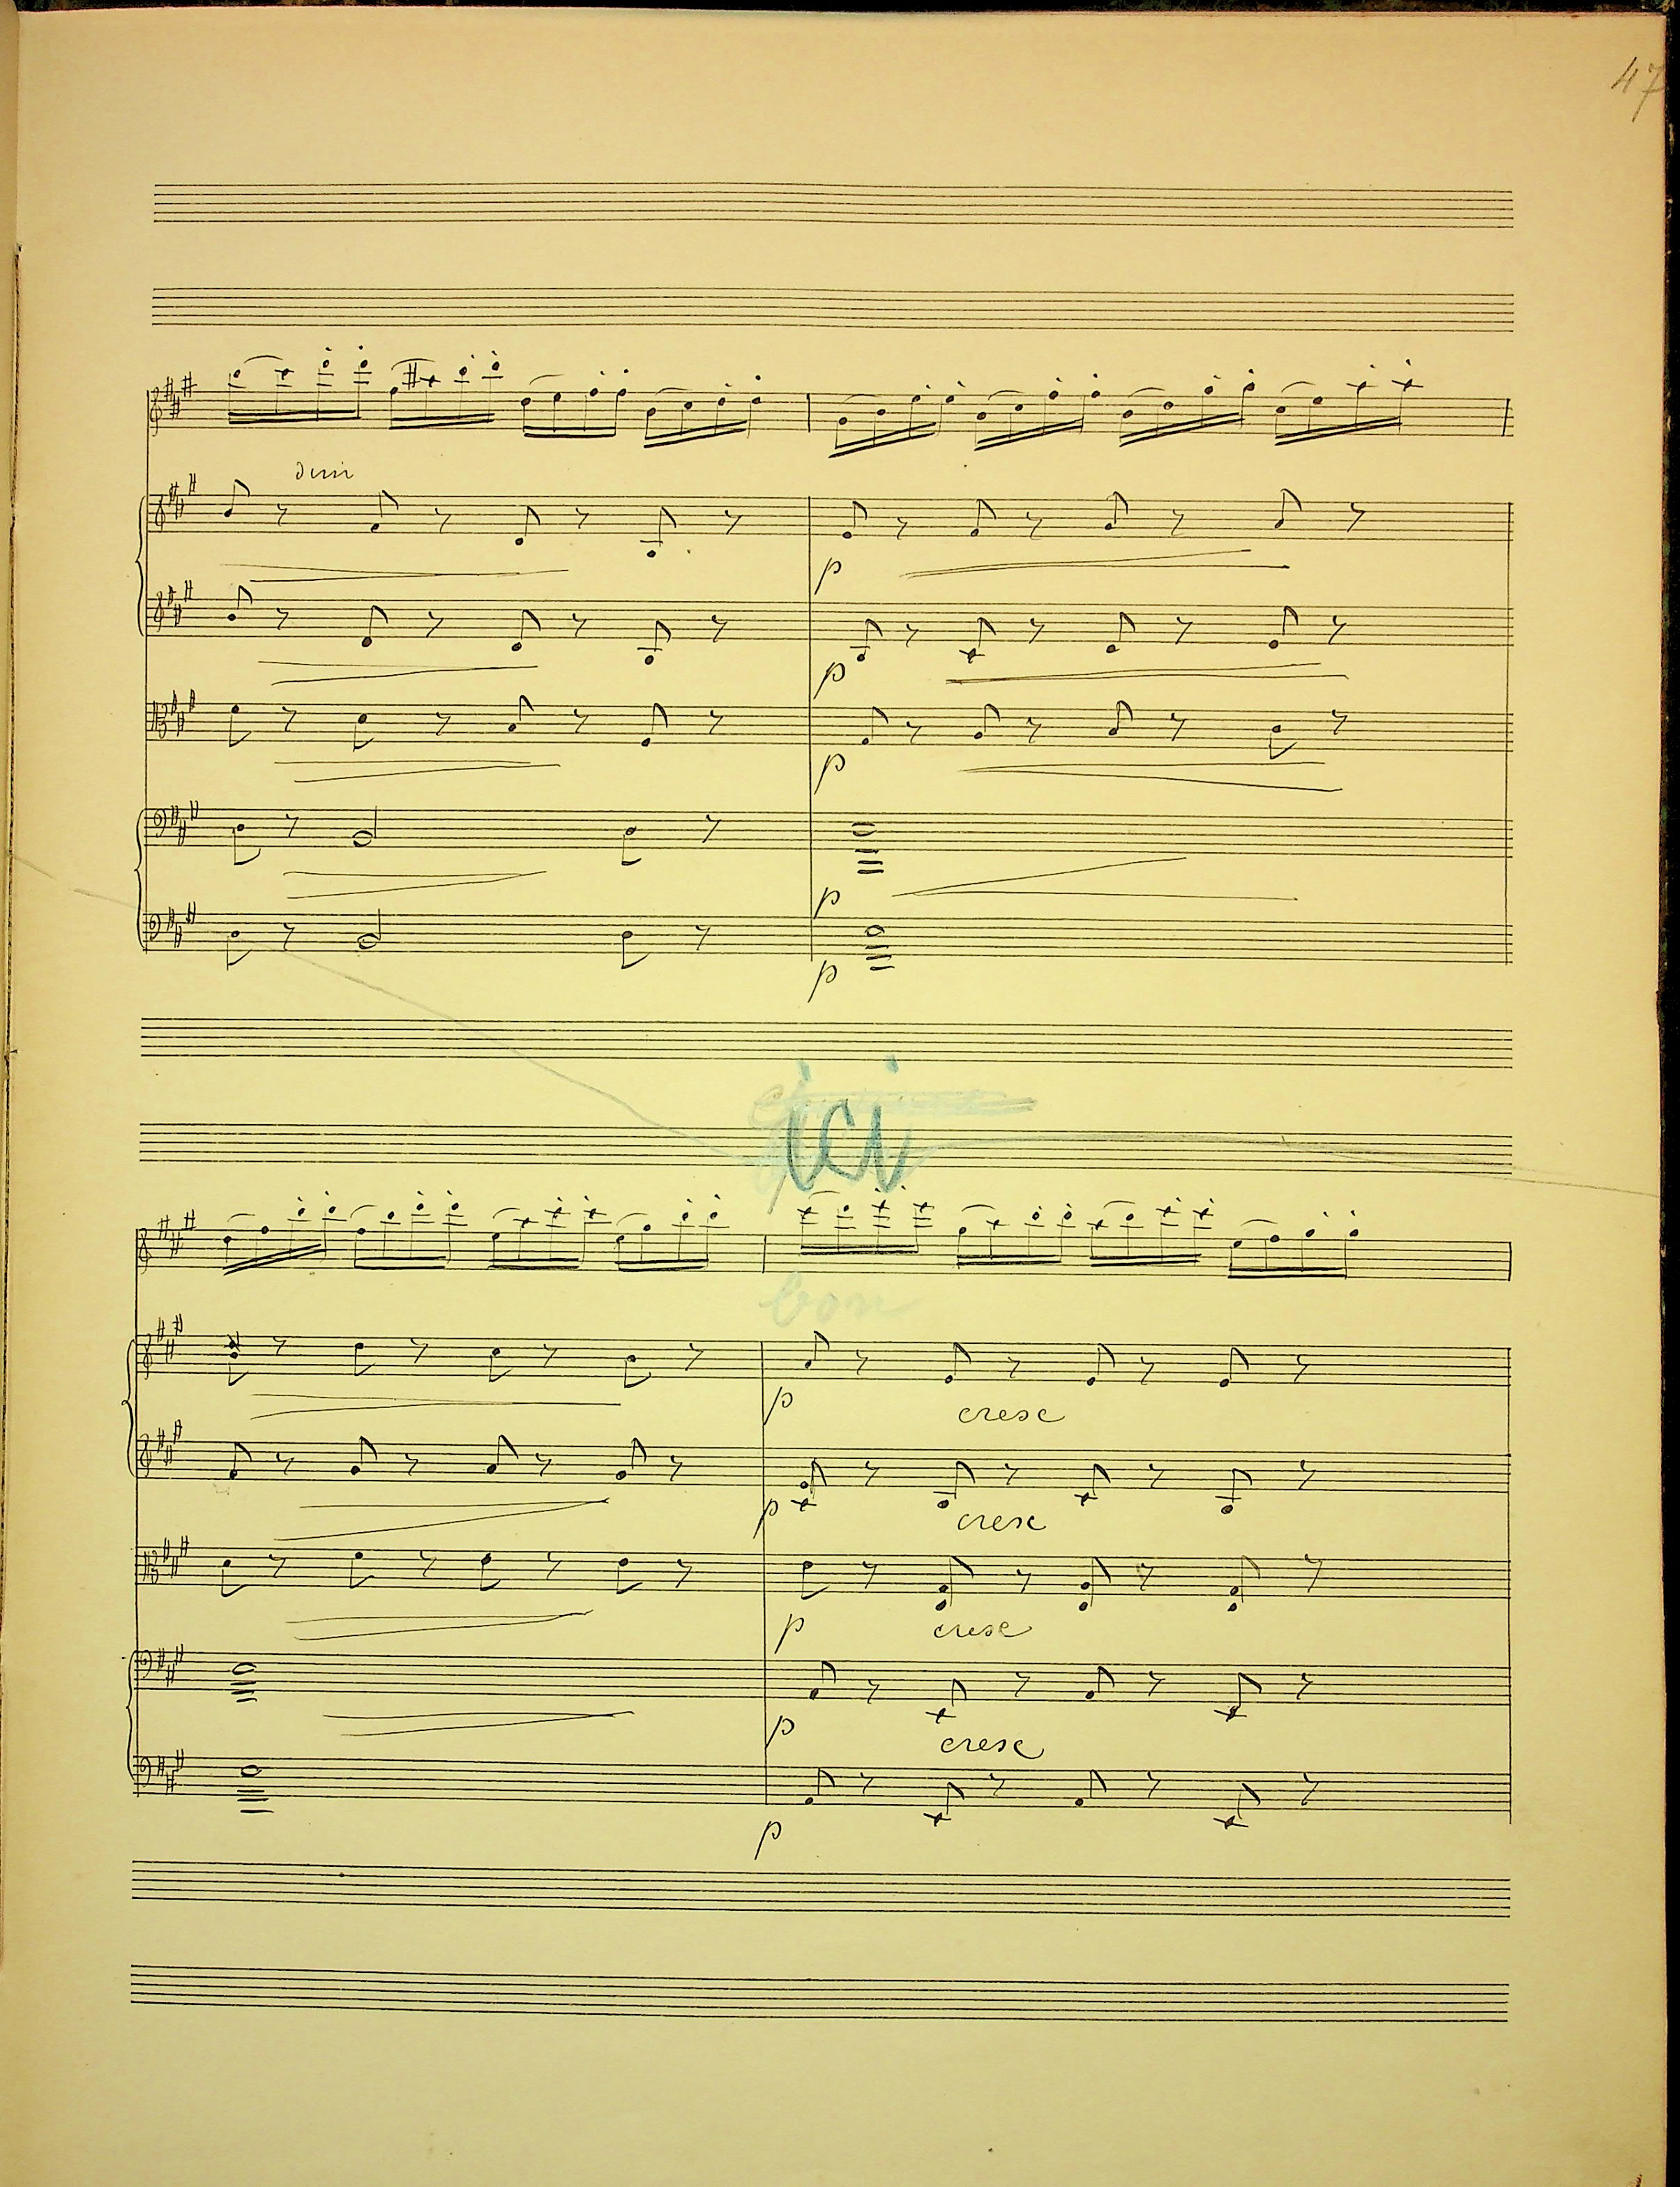 47
dim
p
p
p
p
p
ici
bon
p
cresc
p cresc
p
cresc
p
cresc
p